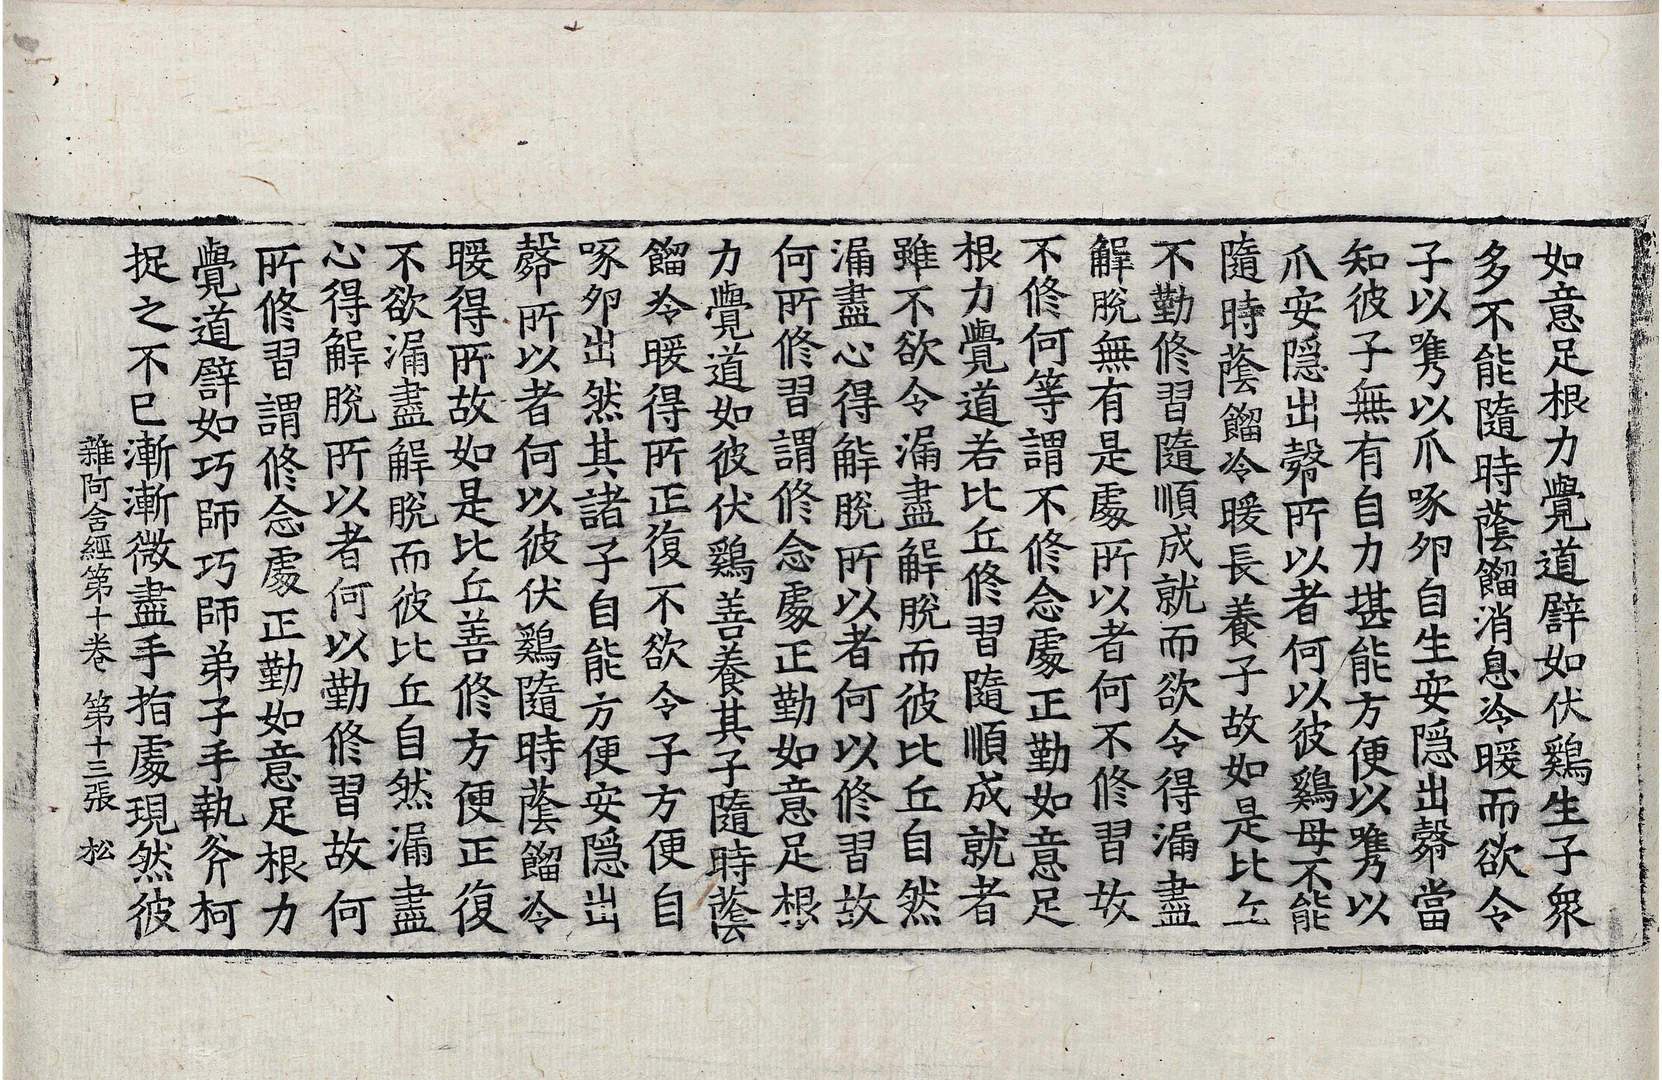 如意足根力覺道譬如伏鷄生子衆
多不能隨時蔭餾消息冷暖而欲令
子以㗲以爪啄卵自生安隱出㲉當
知彼子無有自力堪能方便以㗲以
爪安隱出㲉所以者何以彼鷄母不能
隨時蔭餾冷暖長養子故如是比丘
不勤修習隨順成就而欲令得漏盡
解脫無有是處所以者何不修習故
不修何等謂不修念處正勤如意足
根力覺道若比丘修習隨順成就者
雖不欲令漏盡解脫而彼比丘自然
漏盡心得解脫所以者何以修習故
何所修習謂修念處正勤如意足根
力覺道如彼伏鷄善養其子隨時蔭
餾冷暖得所正復不欲令子方便自
啄卵出然其諸子自能方便安隱出
㲉所以者何以彼伏鷄隨時蔭餾冷
暖得所故如是比丘善修方便正復
不欲漏盡解脫而彼比丘自然漏盡
心得解脫所以者何以勤修習故何
所修習謂修念處正勤如意足根力
覺道譬如巧師巧師弟子手執斧柯
捉之不已漸漸微盡手指處現然彼
雜阿含經第十卷 第十三張 松